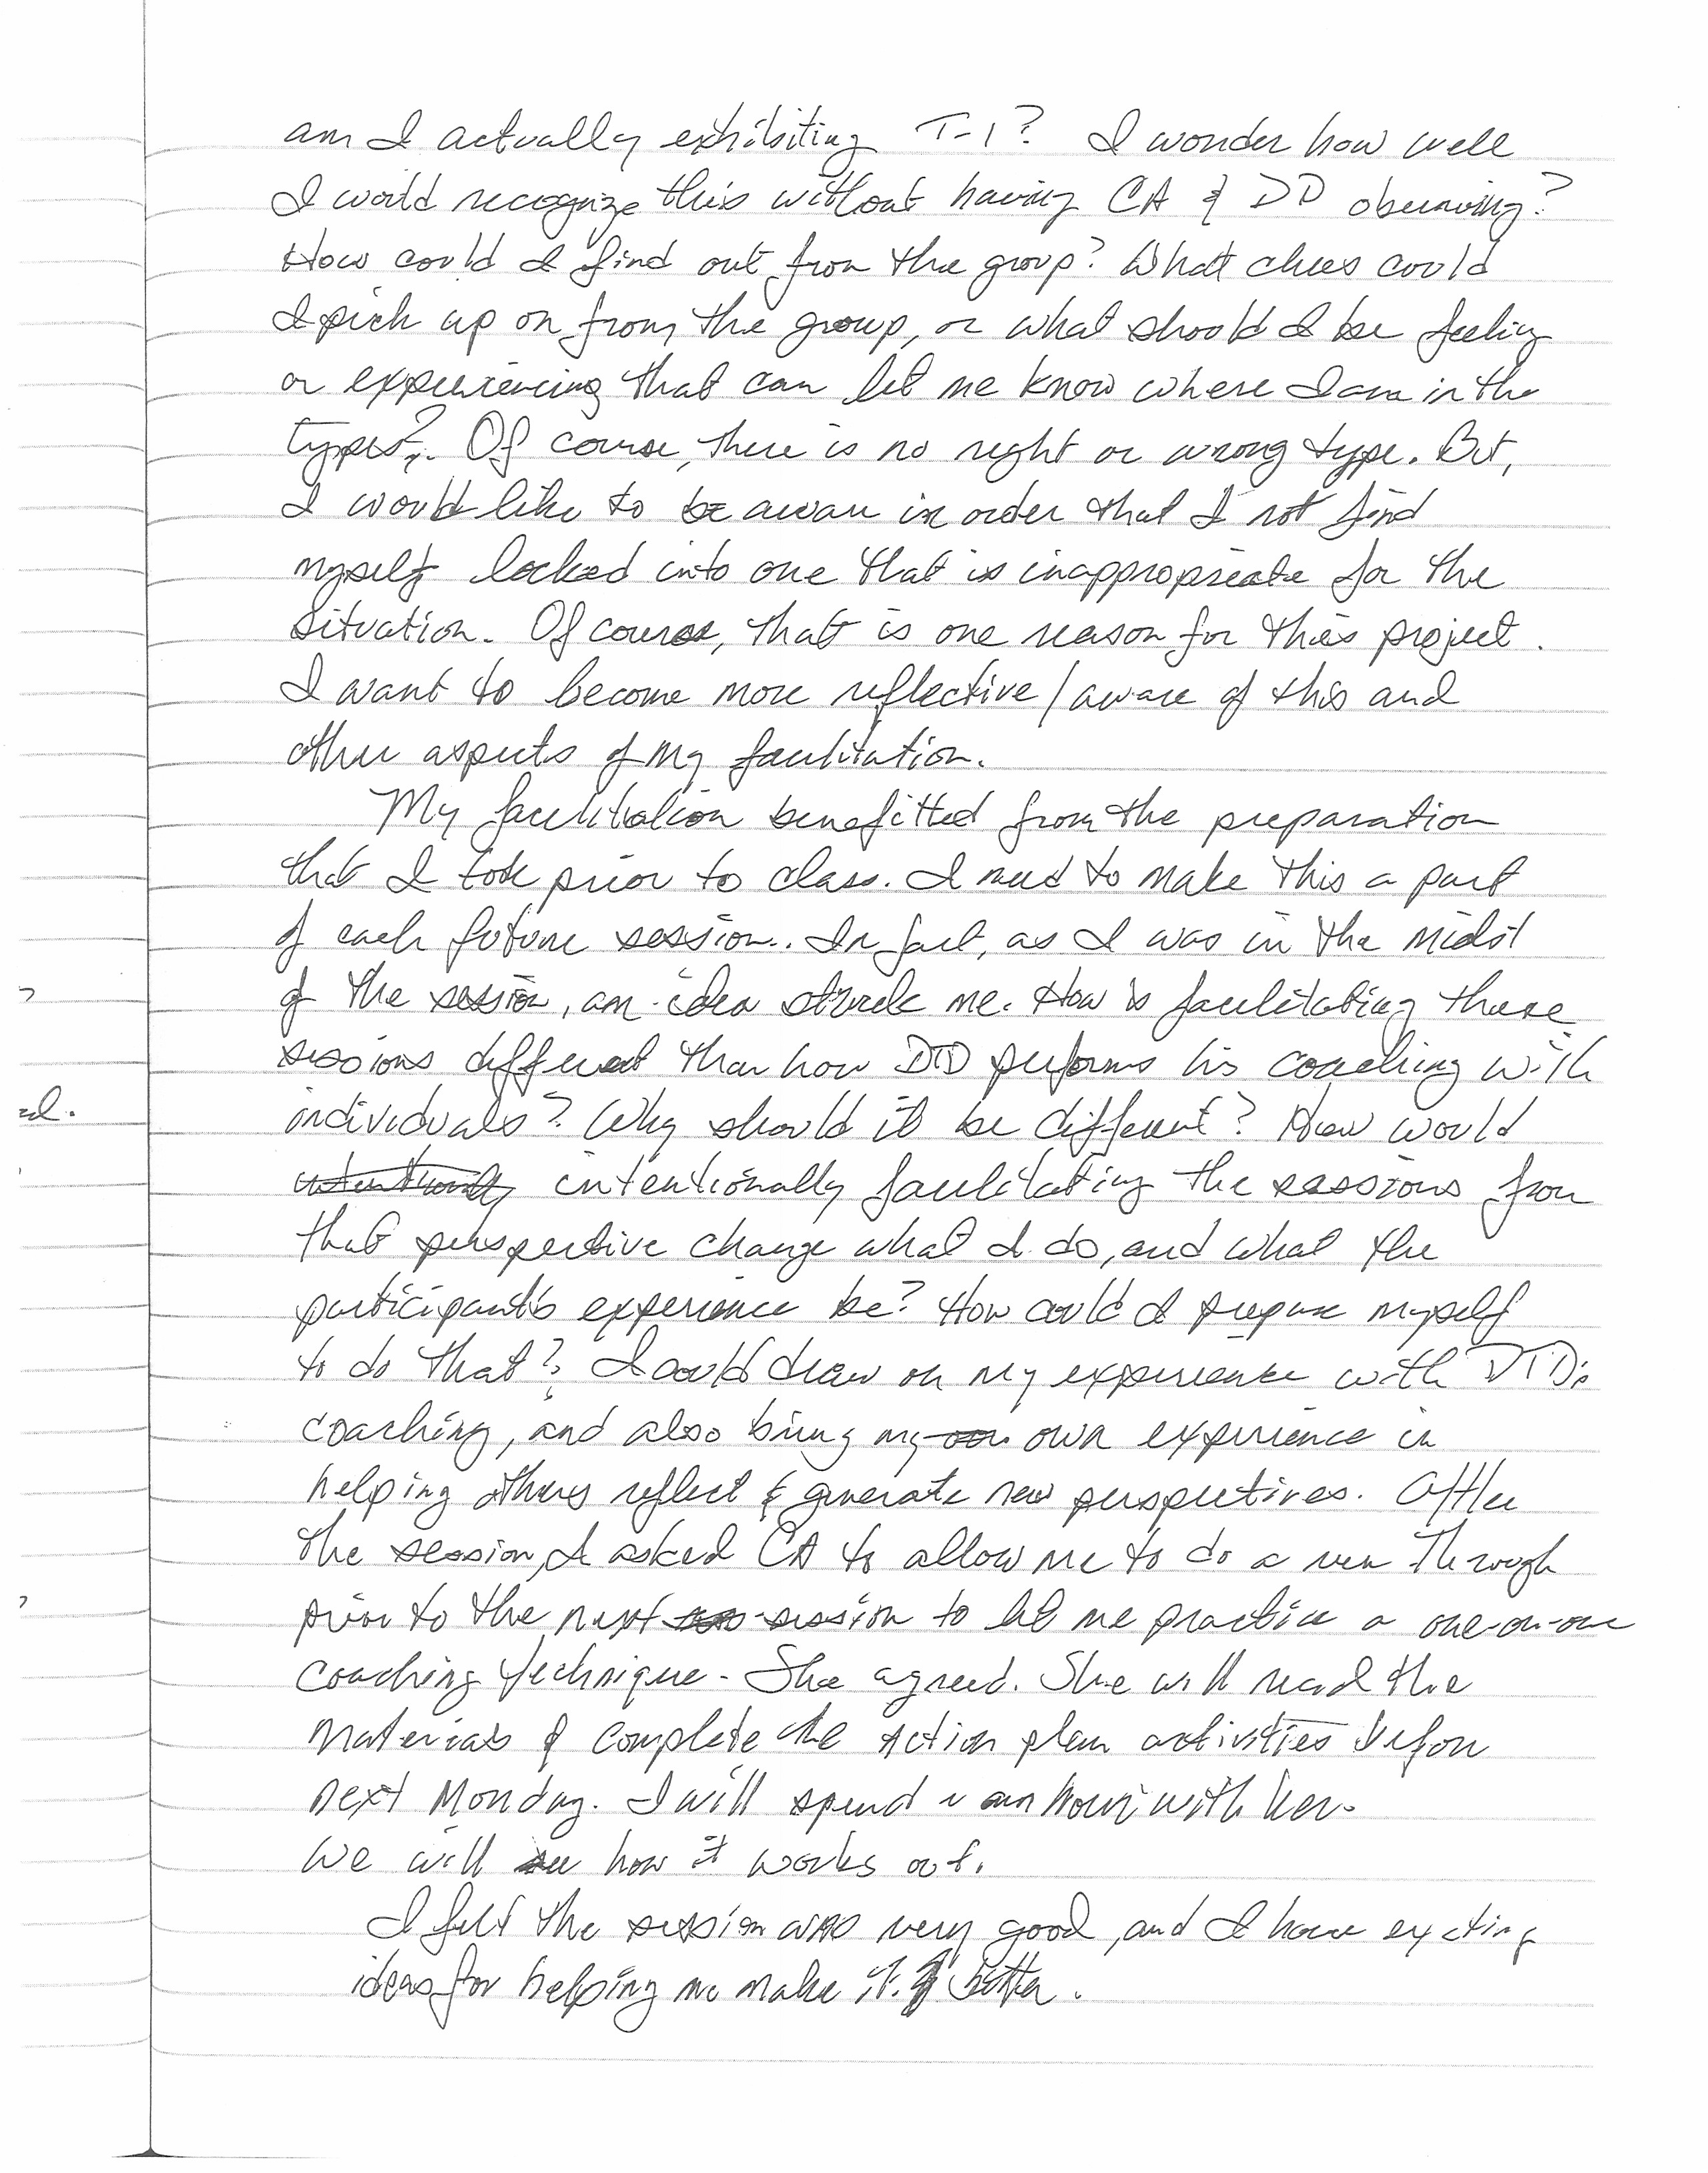 am I actually exhibiting T-1? I wonder how well
I would recognize this without having CA & DD observing?
How could I find out from the group? What clues could
I pick up on from the group, or what should I be feeling
or experiencing that can let me know where I am in the
types?. Of course, there is no right or wrong type. But,
I would like to be aware in order that I not find
myself locked into one that is inappropriate for the
situation. Of course, that is one reason for this project.
I want to become more reflective/aware of this and
other aspects of my facilitation.
My facilitation benefitted from the preparation
that I took prior to class. I need to make this a part
of each future session. In fact, as I was in the midst
of the session, an idea struck me. How is facilitating these
sessions different than how DTD performs his coaching with
individuals? Why should it be different? How would
intentionally facilitating the sessions from
that perspective change what I do, and what the
participant's experience be? How could I prepare myself
to do that? I could draw on my experience with DTDs
coaching, and also bring my own experience in
helping others reflect & generate new perspectives. After
the session, I asked CA to allow me to do a run through
prior to the next session to let me practice a one-on-one
coaching technique - She agreed. She will read the
materials & complete the Action plan activities before
next Monday. I will spend an hour with her.
We will see how it works out.
I felt the session was very good, and I have exciting
ideas for helping me make it better.
?
ed.
,
?